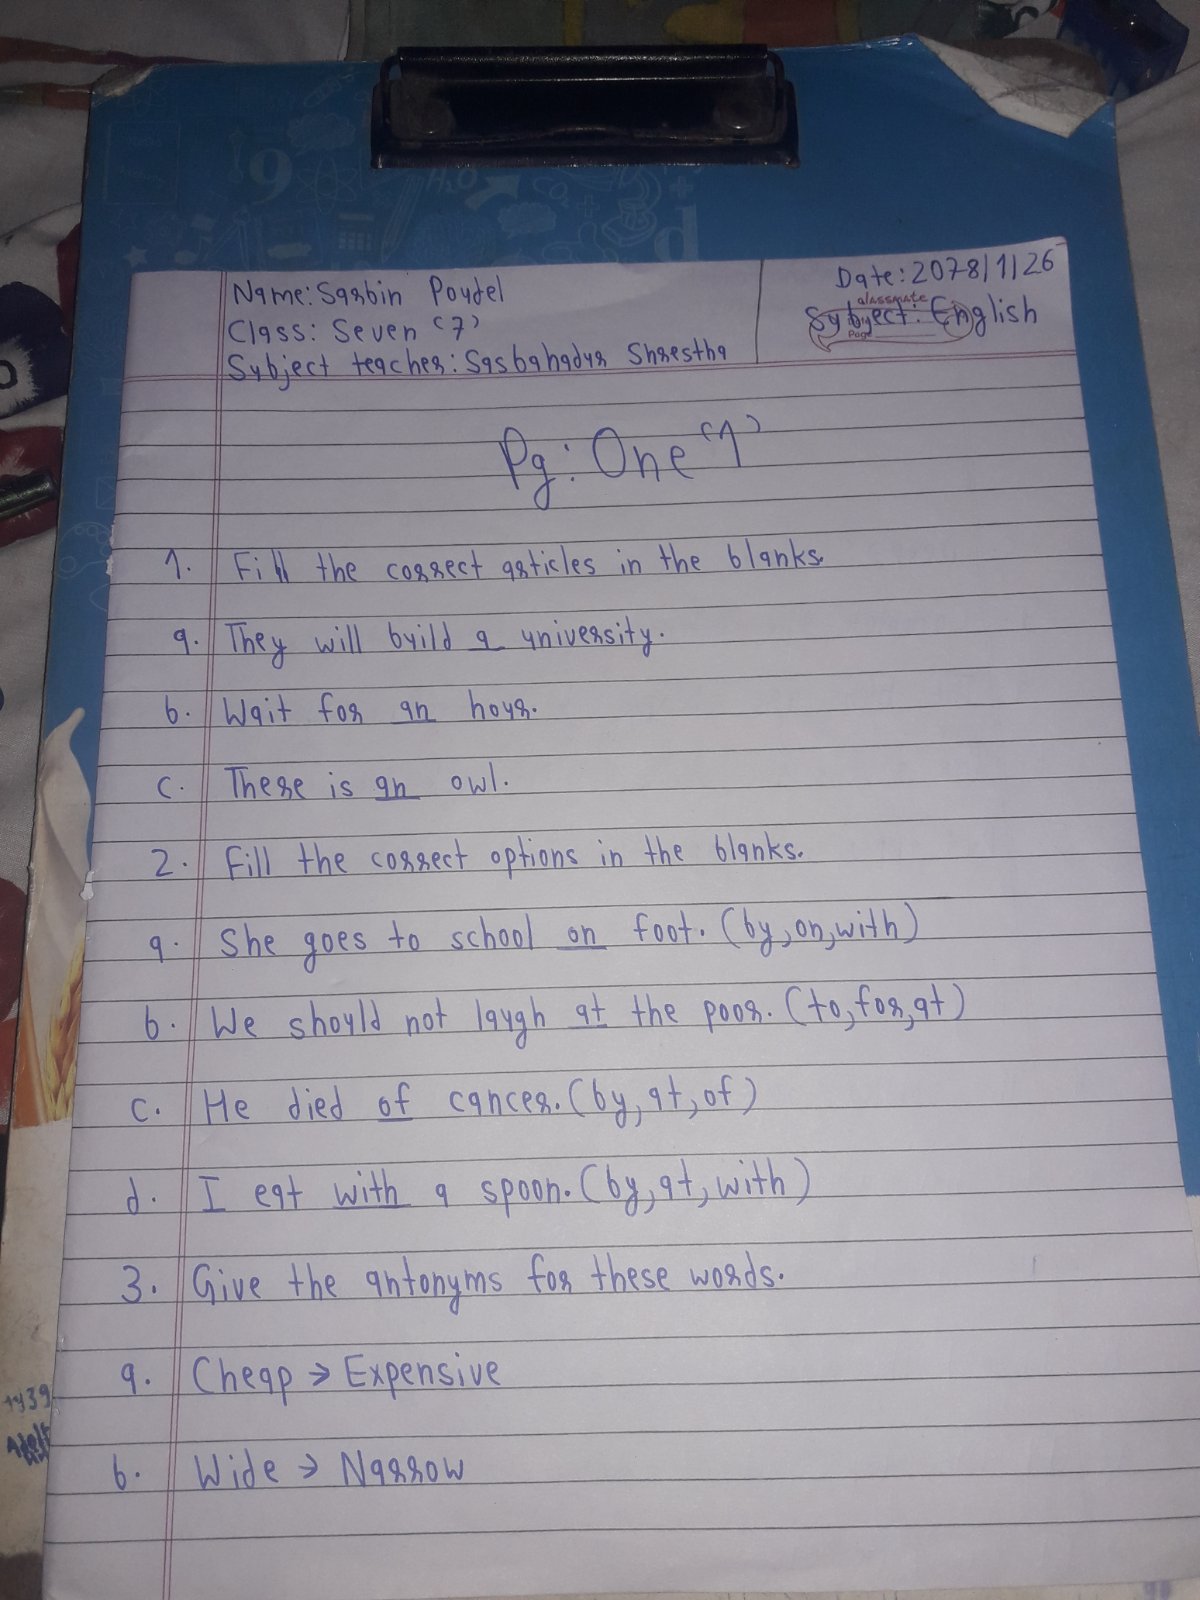 Name: Sarbin Poudel
Class: Seven (7)
Subject teacher: Sarbahadur Shrestha
Date: 2078/1/26
classmate
Subject: English
Page
Pg: One (1)
1. Fill the correct articles in the blanks.
a. They will build a university.
b. Wait for an hour.
c. There is an owl.
2. Fill the correct options in the blanks.
a. She goes to school on foot. (by, on, with)
b. We should not laugh at the poor. (to, for, at)
c. He died of cancer. (by, at, of)
d. I eat with a spoon. (by, at, with)
3. Give the antonyms for these words.
a. Cheap → Expensive
b. Wide → Narrow
9
H₂O
d